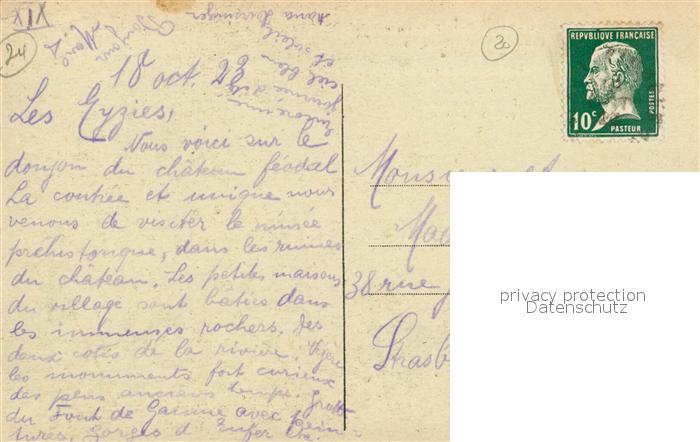 XIX
24
20
18 oct. 23
Les Eyzies,
Nous voici sur le
donjon du château féodal
La contrée est unique nous
venons de visiter le musée
préhistorique, dans les ruines
du château. Les petites maisons
du village sont bâties dans
les immenses rochers. Des
deux cotés de la rivière. Vézère
les monuments fort curieux
des plus anciens temps. Grotte
du Font de Gaume avec pein-
tures, Gorges d'Enfer etc.
journée
ciel bleu
et soleil
Maria
REPUBLIQUE FRANÇAISE
POSTES
10c
PASTEUR
Monsieur et
Mad
38 rue
Strasb
privacy protection
Datenschutz